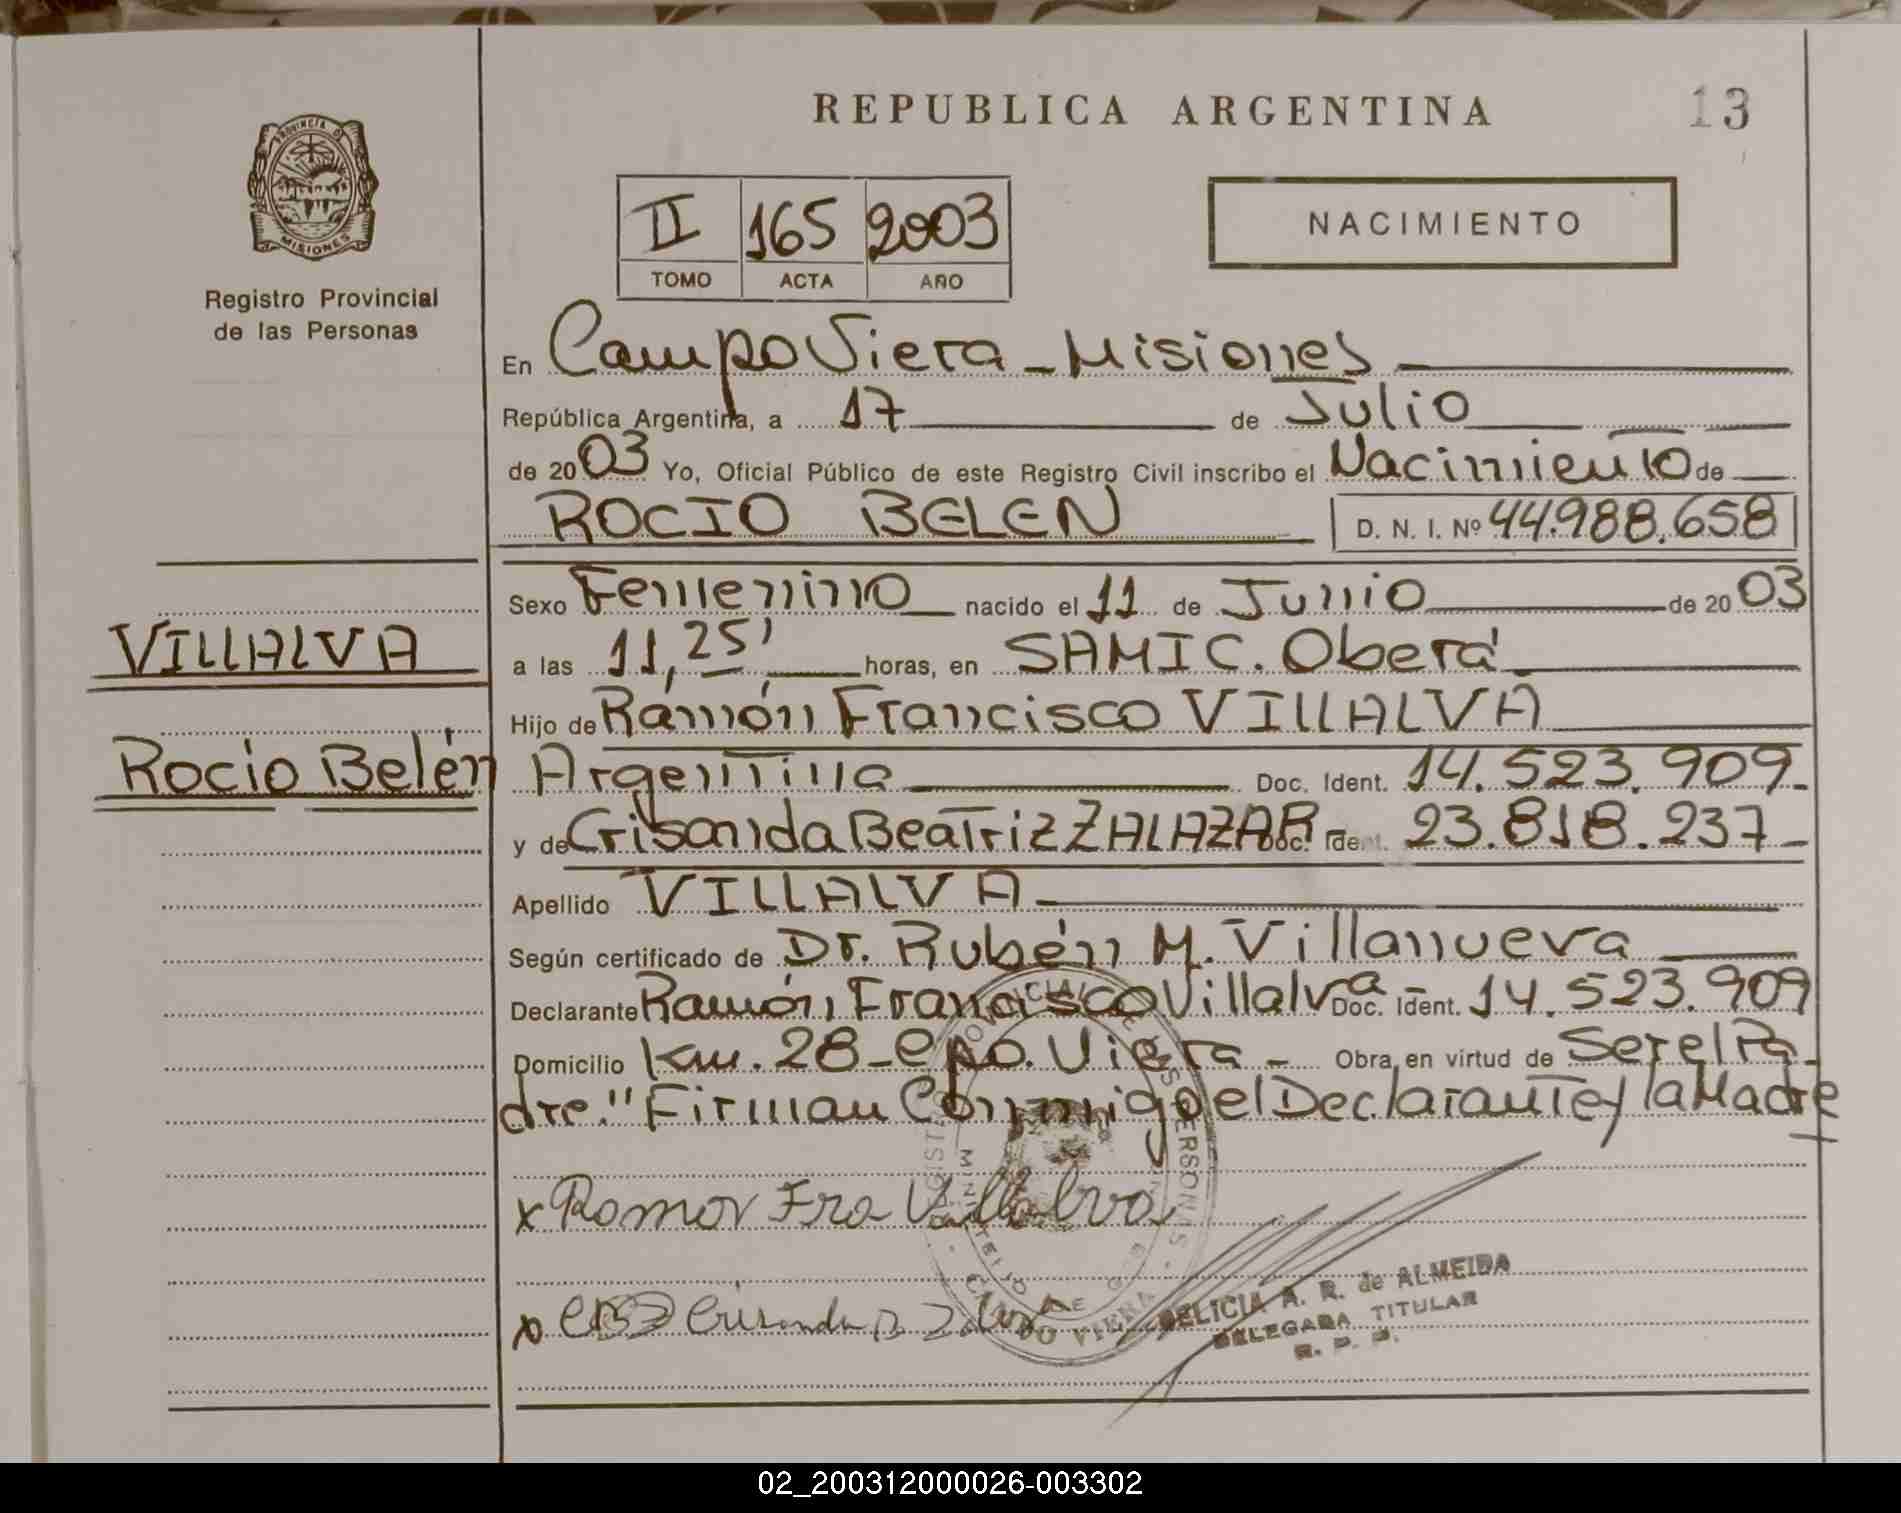 REPUBLICA ARGENTINA
13
PROVINCIA DE
MISIONES
Registro Provincial
de las Personas
II 165 2003
TOMO ACTA AÑO
NACIMIENTO
En Campo Viera - Misiones
República Argentina, a 17 de Julio
de 2003 Yo, Oficial Público de este Registro Civil inscribo el Nacimiento de
ROCIO BELEN D. N. I. Nº 44.988.658
Sexo Femenino nacido el 11 de Junio de 2003
VILLALVA
a las 11,25' horas, en SAMIC. Oberá
Hijo de Ramón Francisco VILLALVA
Rocio Belén
Argentina Doc. Ident. 14.523.909-
y de Crisanda Beatriz ZALAZAR Doc. Ident. 23.818.237-
Apellido VILLALVA
Según certificado de Dr. Rubén M. Villanueva
Declarante Ramón Francisco Villalva Doc. Ident. 14.523.909
Domicilio Km. 28 - Cpo. Viera - Obra en virtud de Ser el Pa-
dre." Firman Conmigo el Declarante y la Madre
x Ramon Fra Villalva
DELICIA A. R. de ALMEIDA
DELEGADA TITULAR
R. P. P.
CAMPO VIERA
02_200312000026-003302